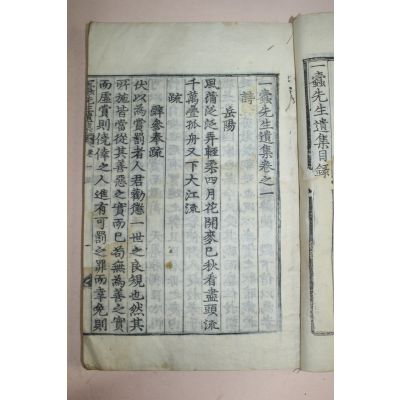 一蠹先生遺集目録
一蠹先生遺集卷之一
詩
岳陽
風蒲泛泛弄輕柔四月花開麥已秋看盡頭流
千萬疊孤舟又下大江流
疏
辭參奉疏
伏以爲賞罰者人君勸懲一世之良規也然其
所施皆當從其善惡之實而已苟無爲善之實
而虛賞則僥倖之人進有可罰之罪而幸免則